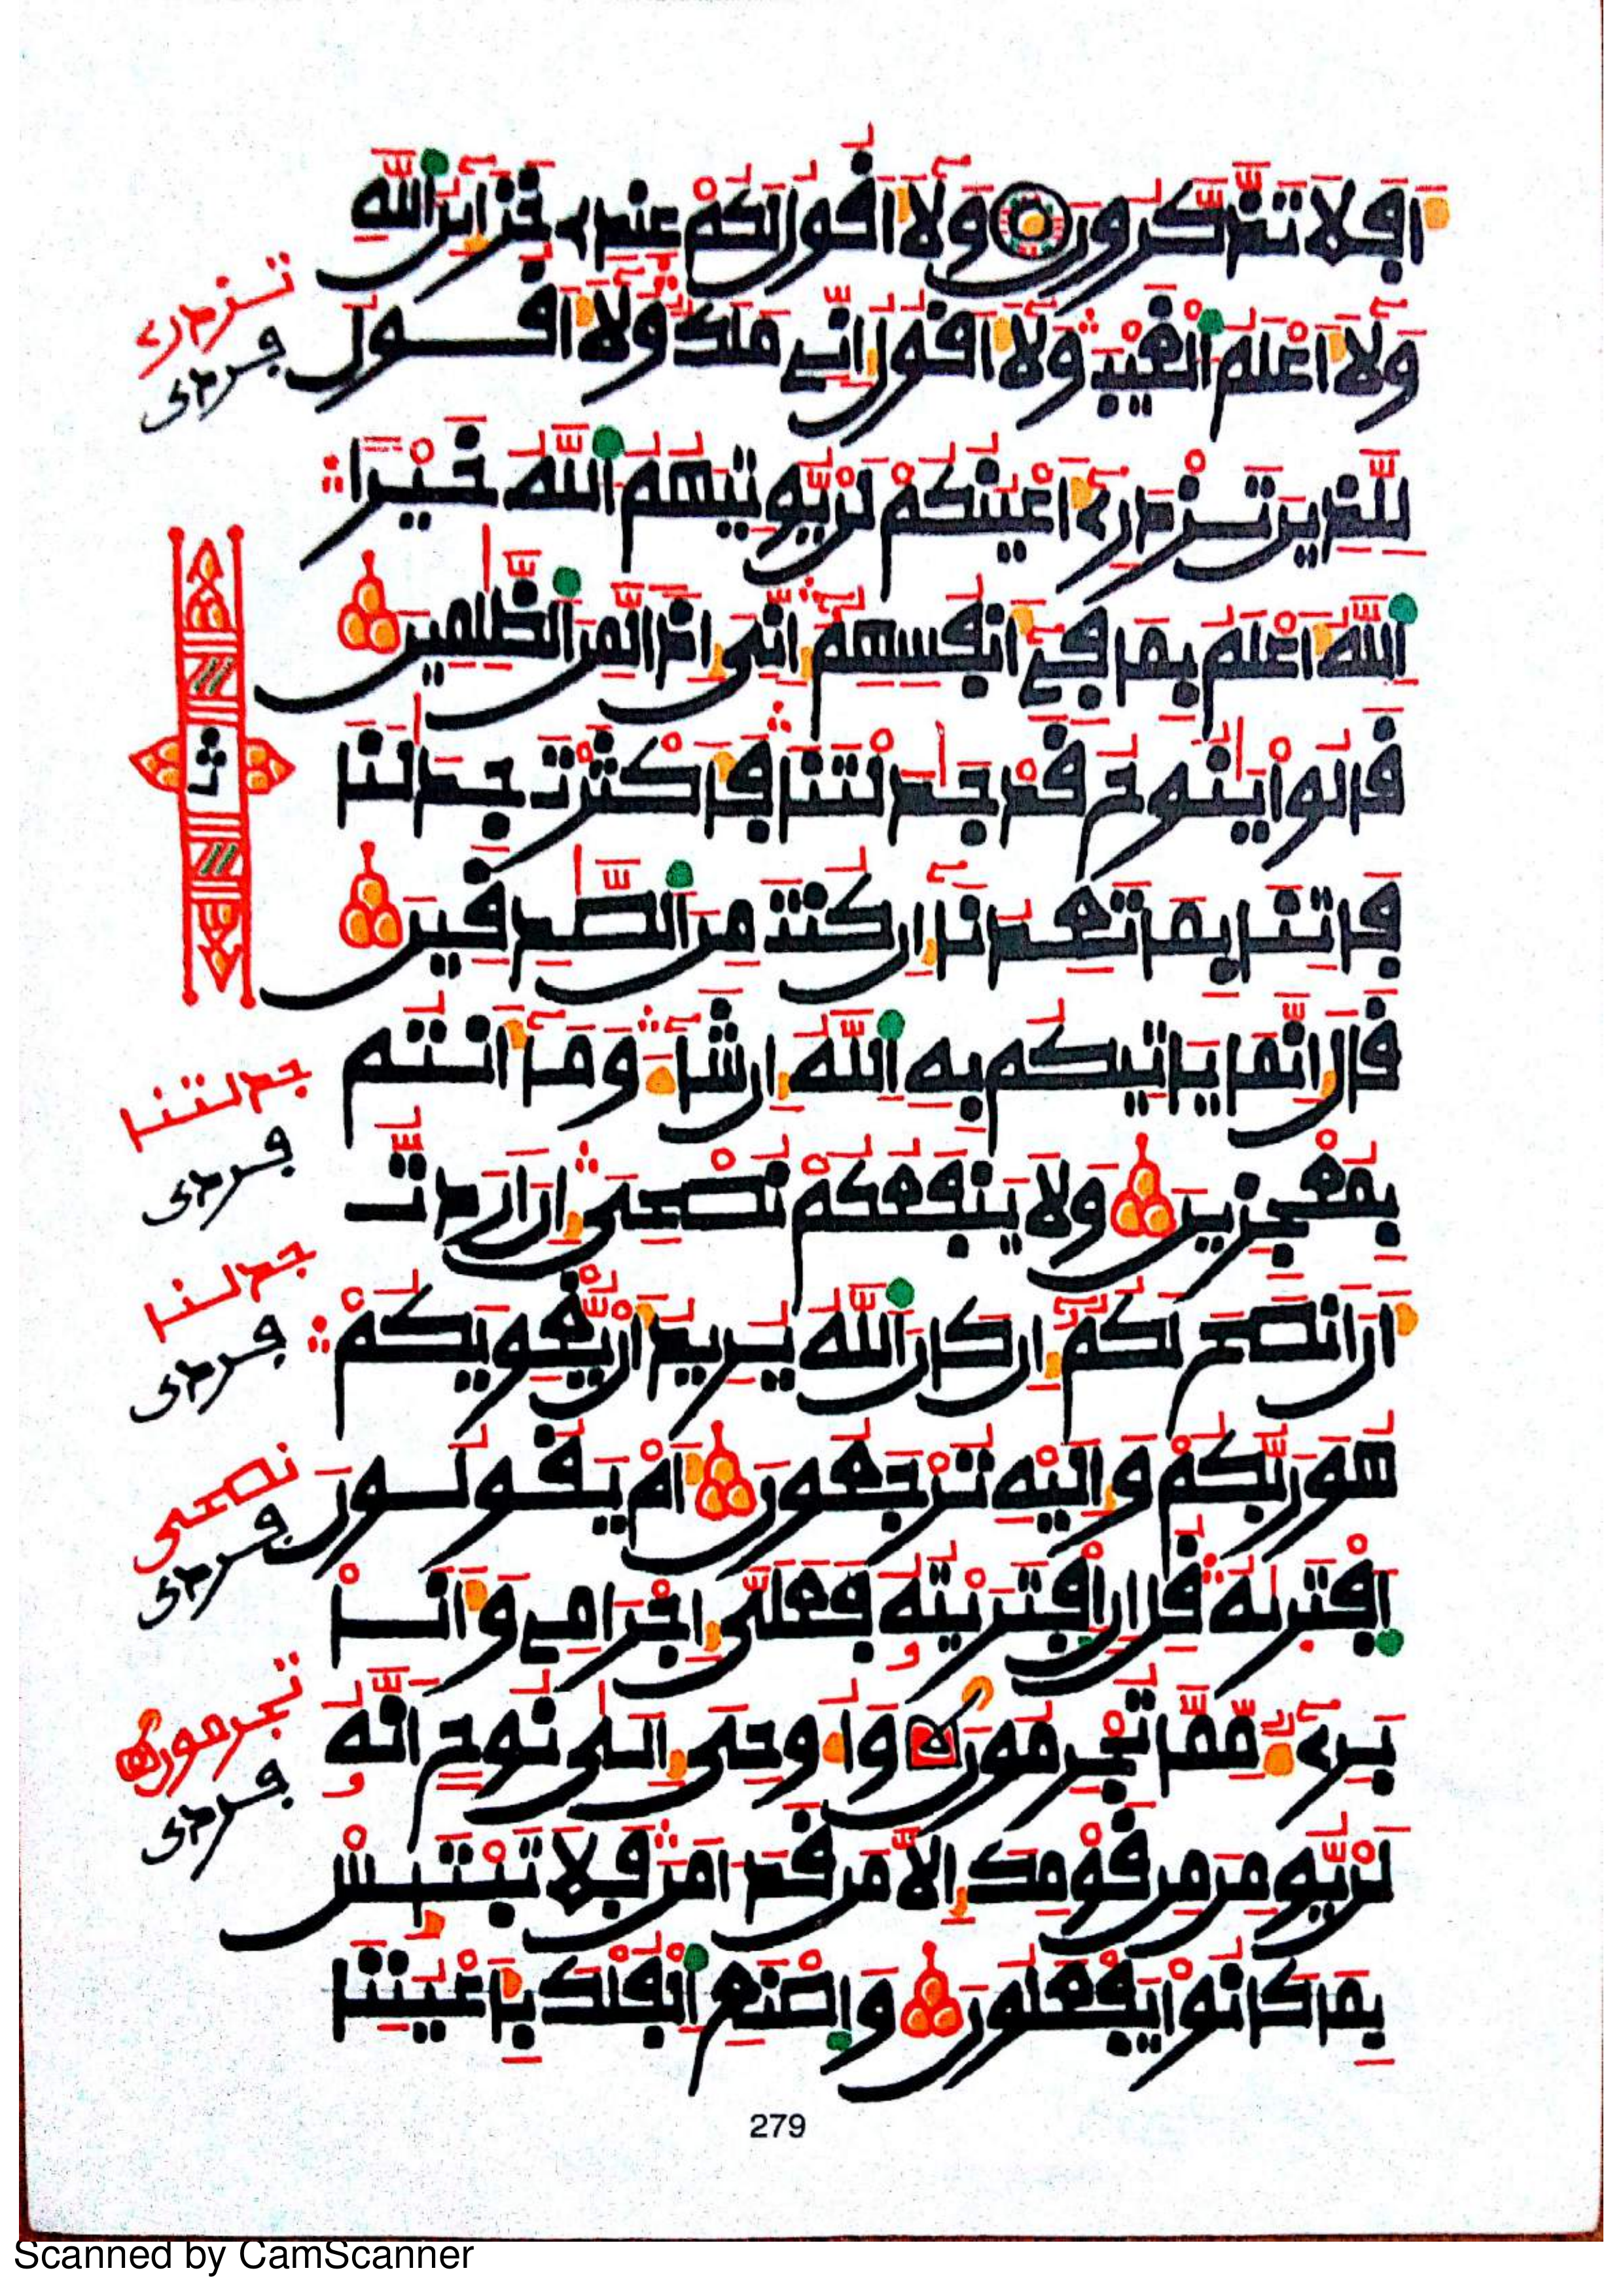 اَفَلَا تَذَّكَّرُونَ وَلَا أَقُولُ لَكُمْ عِندِے خَزَآئِنُ اُللَّهِ
وَلَا أَعْلَمُ اُلْغَيْبَ وَلَا أَقُولُ إِنِّے مَلَكٌ وَلَا أَقُولُ
تزدرے
فردى
لِلذِينَ تَزْدَرِے أَعْيُنُكُمْ لَنْ يُّوتِيَهُمُ اُللَّهُ خَيْراً
اُللَّهُ أَعْلَمُ بِمَا فِے أَنفُسِهِمُ إِنِّىَ إِذاً لَّمِنَ اَلظَّٰلِمِينَ
ث
قَالُوا يَٰنُوحُ قَدْ جَٰدَلْتَنَا فَأَكْثَرْتَ جِدَٰلَنَا
فَاتِنَا بِمَا تَعِدُنَا إِن كُنتَ مِنَ اَلصَّٰدِقِينَ
قَالَ إِنَّمَا يَاتِيكُم بِهِ اِللَّهُ إِن شَآءَ وَمَا أَنتُم
جدلتنا
فردى
بِمُعْجِزِينَ وَلَا يَنفَعُكُمْ نُصْحِىَ إِنْ أَرَدتُّ
جدلنا
فردى
أَنْ أَنصَحَ لَكُمُ إِن كَانَ اَللَّهُ يُرِيدُ أَنْ يُّغْوِيَكُمْ
هُوَ رَبُّكُمْ وَإِلَيْهِ تُرْجَعُونَ أَمْ يَقُولُونَ
نصحى
فردى
اَفْتَرَىٰهُ قُلْ إِنِ اِفْتَرَيْتُهُ فَعَلَىَّ إِجْرَامِے وَأَنَا
بَرِےٓءٌ مِّمَّا تُجْرِمُونَ وَأُوحِىَ إِلَىٰ نُوحٍ أَنَّهُ
تجرمون
فردى
لَنْ يُّومِنَ مِن قَوْمِكَ إِلَّا مَن قَدَ اٰمَنَ فَلَا تَبْتَئِسْ
بِمَا كَانُوا يَفْعَلُونَ وَاصْنَعِ اِلْفُلْكَ بِأَعْيُنِنَا
279
Scanned by CamScanner